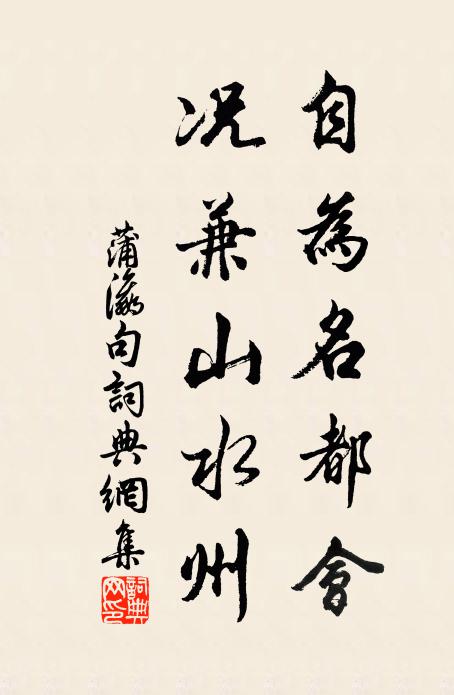 自為名都會
况兼山水州
蒲瀛句詞典網集
詞典網印